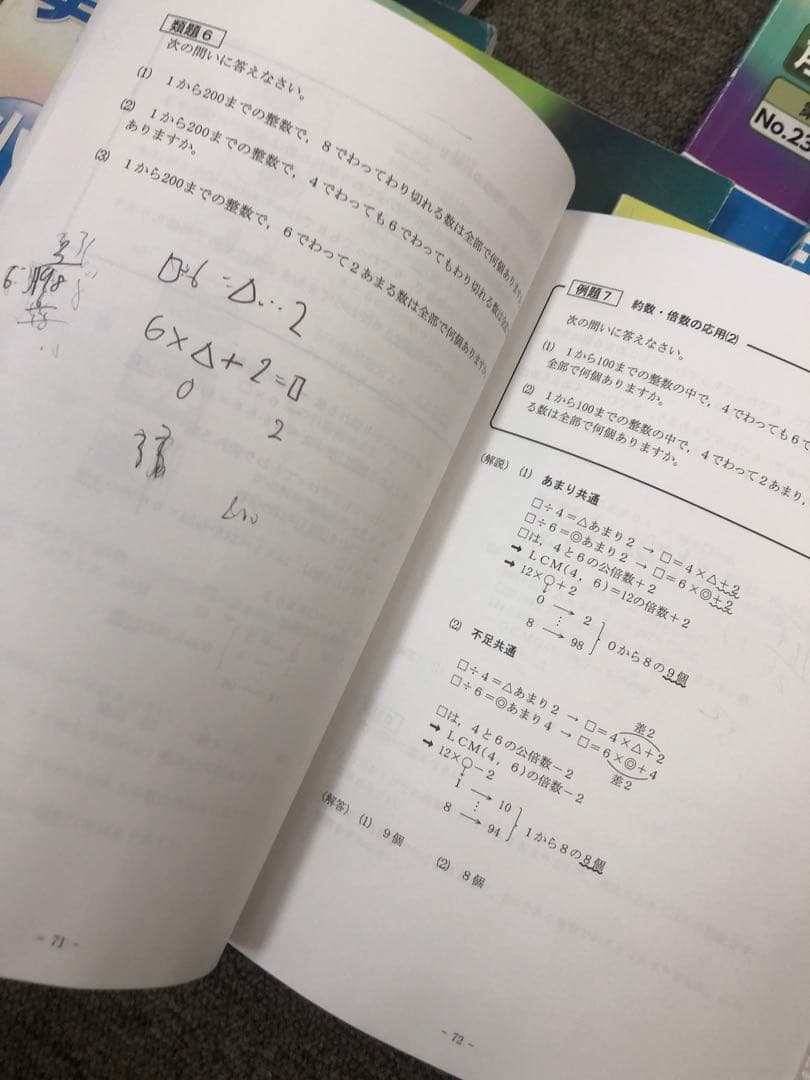 類題6
次の問いに答えなさい。
(1) 1から200までの整数で，8でわってわり切れる数は全部で何個ありますか。
(2) 1から200までの整数で，4でわっても6でわってもわり切れる数は全部で
ありますか。
(3) 1から200までの整数で，6でわって2あまる数は全部で何個ありますか。
6 198
□÷6=△…2
6×△+2=□
0
2
- 71 -
No.23
例題7 約数・倍数の応用(2)
次の問いに答えなさい。
(1) 1から100までの整数の中で，4でわっても6で
全部で何個ありますか。
(2) 1から100までの整数の中で，4でわって2あまり，
る数は全部で何個ありますか。
(解説) (1) あまり共通
□÷4＝△あまり2 → □＝4×△＋2
□÷6＝◎あまり2 → □＝6×◎＋2
□は，4と6の公倍数＋2
➡ LCM(4, 6)＝12の倍数＋2
➡ 12×○＋2
0 → 2
⋮
8 → 98
0から8の9個
(2) 不足共通
差2
□÷4＝△あまり2 → □＝4×△＋2
□÷6＝◎あまり4 → □＝6×◎＋4
差2
□は，4と6の公倍数－2
➡ LCM(4, 6)の倍数－2
➡ 12×○－2
1 → 10
⋮
8 → 94
1から8の8個
(解答) (1) 9個 (2) 8個
- 72 -